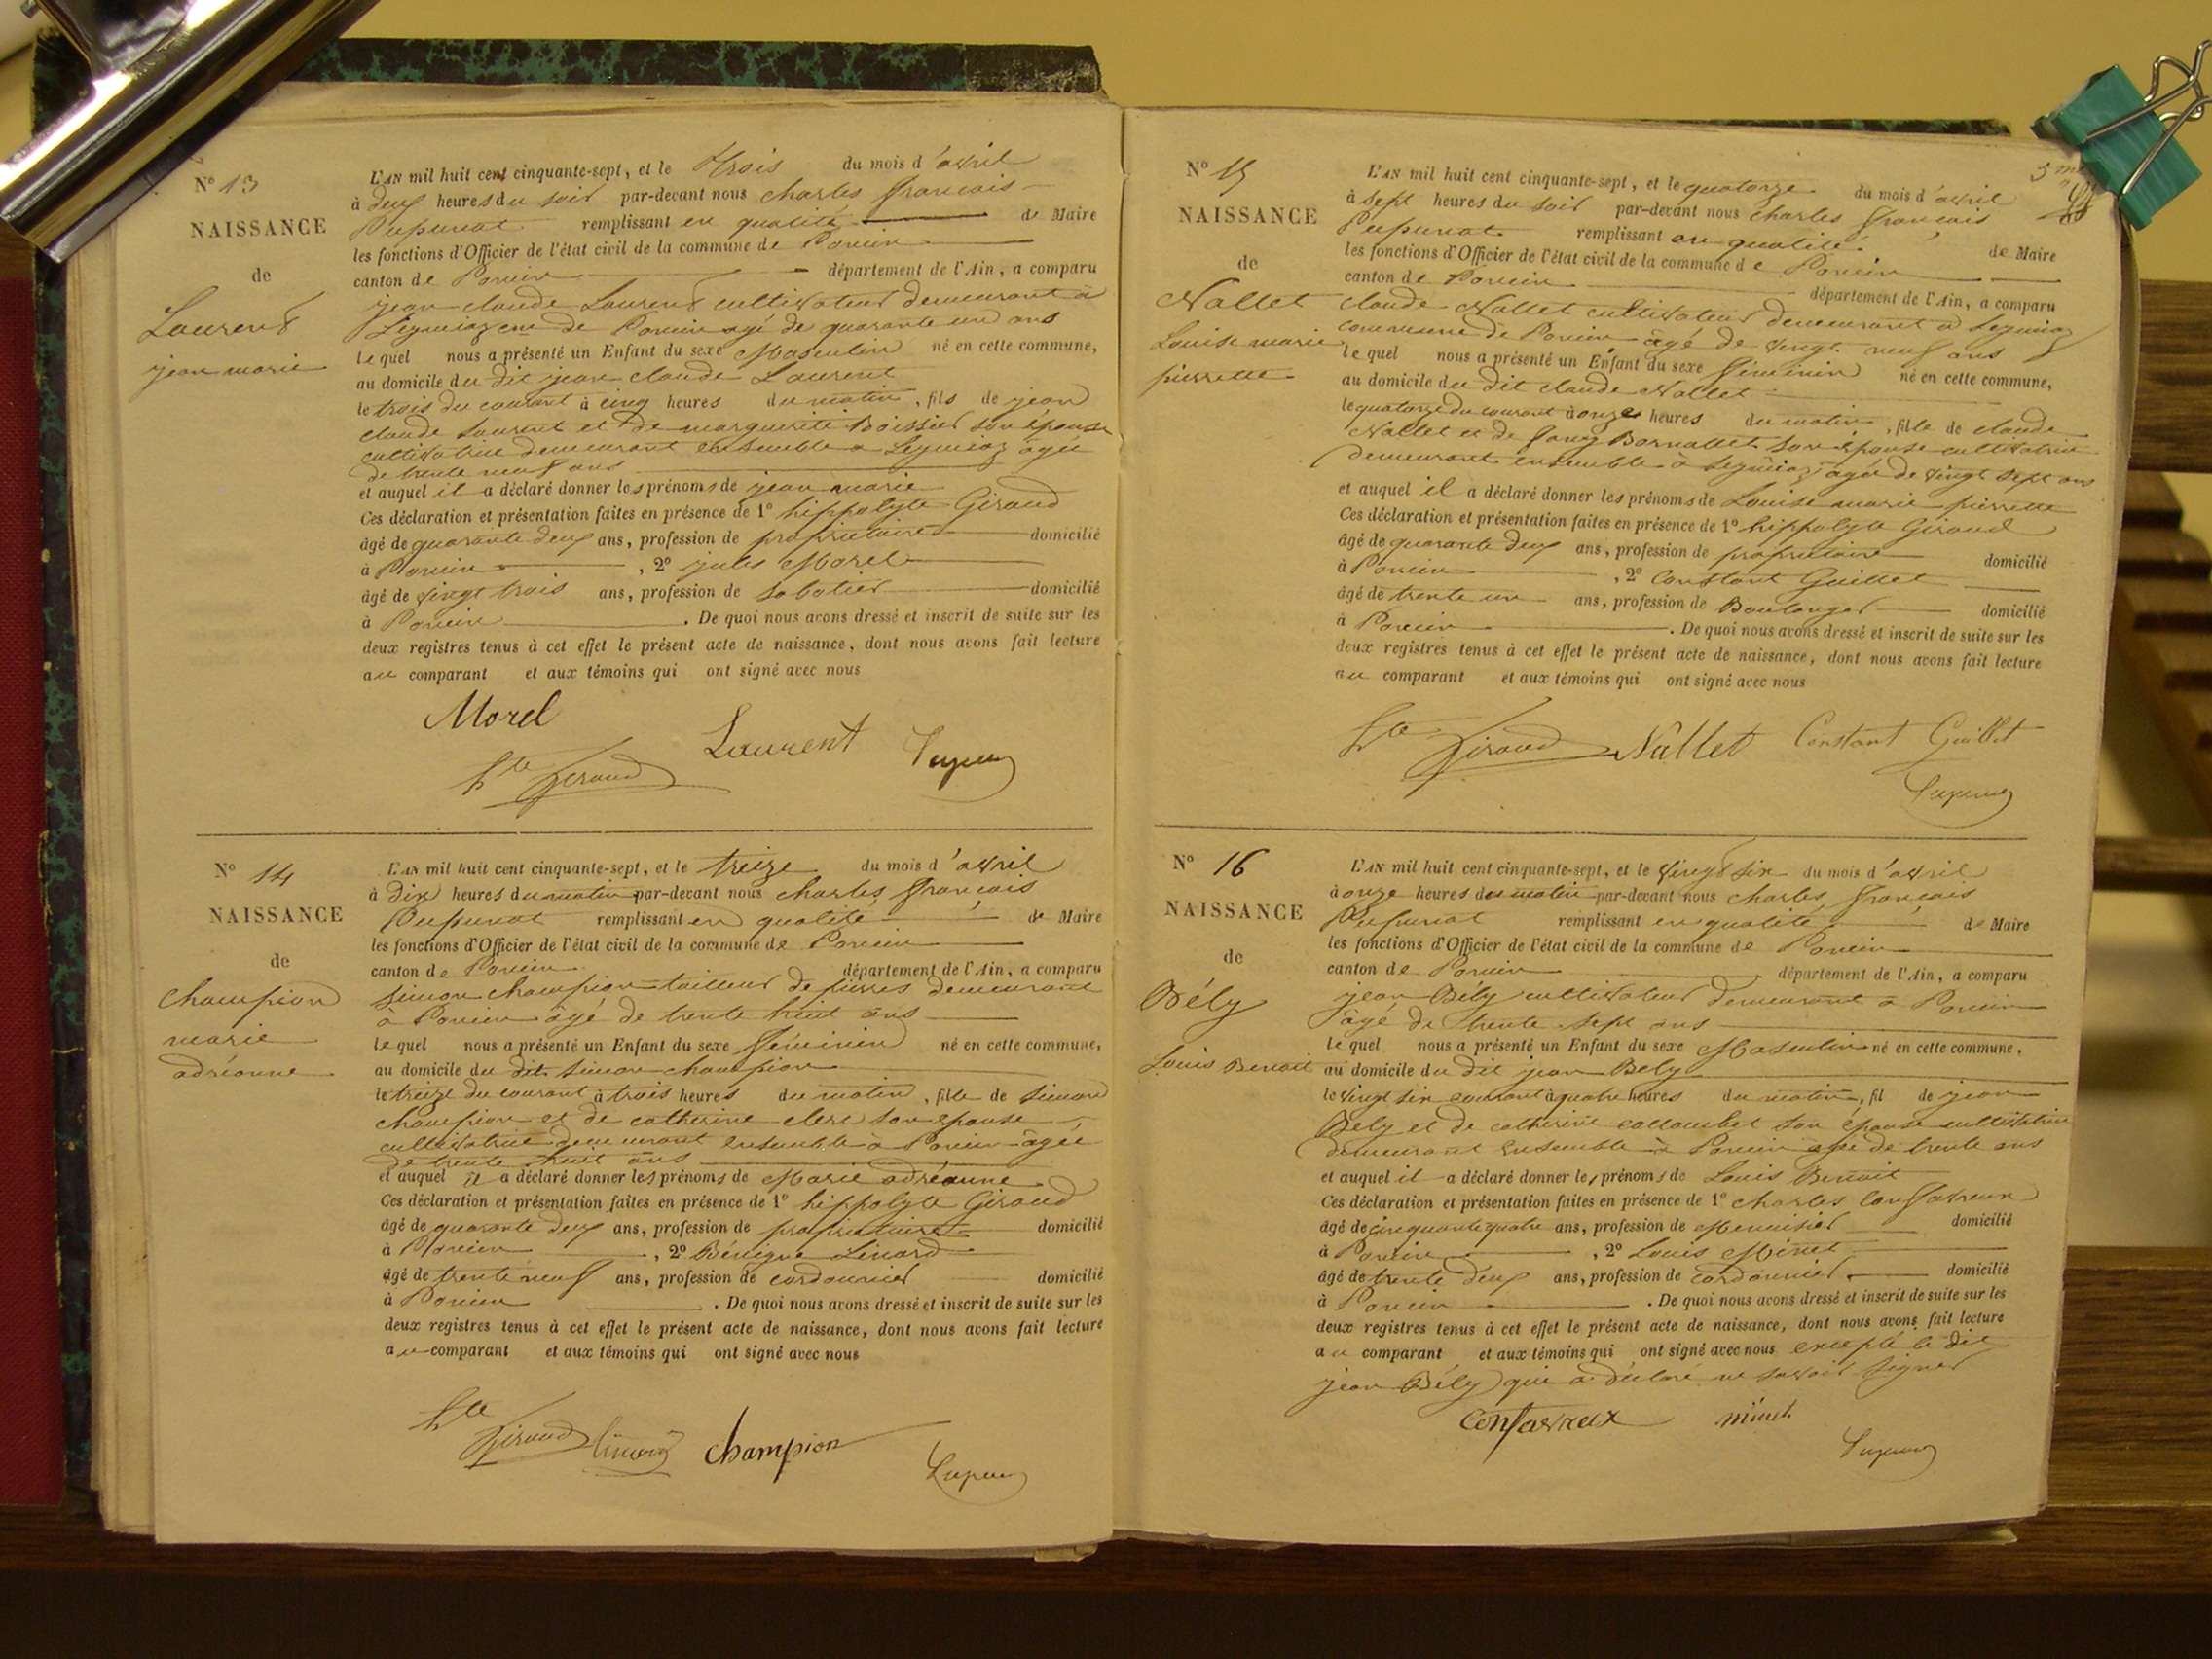 N° 13
NAISSANCE
de
Laurent
jean marie
L'AN mil huit cent cinquante-sept, et le trois du mois d'avril
à deux heures du soir par-devant nous charles françois
Pupunat remplissant en qualité de Maire
les fonctions d'Officier de l'état civil de la commune de Poncin
canton de Poncin département de l'Ain, a comparu
jean claude Laurent cultivateur demeurant à
Leymiaz cne de Poncin agé de quarante un ans
lequel nous a présenté un Enfant du sexe Masculin né en cette commune,
au domicile du dit jean claude Laurent
le trois du courant à cinq heures du matin, fils de jean
claude Laurent et de marguerite Boissier son épouse
cultivatrice demeurant ensemble a Leymiaz âgée
de trente neuf ans
et auquel il a déclaré donner les prénoms de jean marie
Ces déclaration et présentation faites en présence de 1° hippolyte Giraud
âgé de quarante deux ans, profession de propriétaire domicilié
à Poncin, 2° jules Morel
âgé de vingt trois ans, profession de sabotier domicilié
à Poncin. De quoi nous avons dressé et inscrit de suite sur les
deux registres tenus à cet effet le présent acte de naissance, dont nous avons fait lecture
au comparant et aux témoins qui ont signé avec nous
Morel
Laurent
hte Giraud
N° 14
NAISSANCE
de
Champion
marie
adréanne
L'AN mil huit cent cinquante-sept, et le treize du mois d'avril
à dix heures du matin par-devant nous charles françois
Pupunat remplissant en qualité de Maire
les fonctions d'Officier de l'état civil de la commune de Poncin
canton de Poncin département de l'Ain, a comparu
Simon Champion tailleur de pierres demeurant
à Poncin âgé de trente huit ans
lequel nous a présenté un Enfant du sexe féminin né en cette commune,
au domicile du dit Simon champion
le treize du courant à trois heures du matin, fille de Simon
champion et de catherine clerc son epouse
cultivatrice demeurant ensemble à Poncin âgée
de trente huit ans
et auquel il a déclaré donner les prénoms de Marie adréanne
Ces déclaration et présentation faites en présence de 1° hippolyte Giraud
âgé de quarante deux ans, profession de propriétaire domicilié
à Poncin, 2° Bénigne Linard
âgé de trente neuf ans, profession de cordonnier domicilié
à Poncin. De quoi nous avons dressé et inscrit de suite sur les
deux registres tenus à cet effet le présent acte de naissance, dont nous avons fait lecture
au comparant et aux témoins qui ont signé avec nous
hte Giraud Linard Champion
N° 15
NAISSANCE
de
Nallet
Louise marie
pierrette
L'AN mil huit cent cinquante-sept, et le quatorze du mois d'avril
à sept heures du soir par-devant nous charles françois
Pupunat remplissant en qualité de Maire
les fonctions d'Officier de l'état civil de la commune de Poncin
canton de Poncin département de l'Ain, a comparu
claude Nallet cultivateur demeurant à Leymiaz
commune de Poncin âgé de vingt neuf ans
lequel nous a présenté un Enfant du sexe féminin né en cette commune,
au domicile du dit claude Nallet
le quatorze du courant à onze heures du matin, fille de claude
Nallet et de fany Bornallet son épouse cultivatrice
demeurant ensemble à Leymiaz agée de vingt sept ans
et auquel il a déclaré donner les prénoms de Louise marie pierrette
Ces déclaration et présentation faites en présence de 1° hippolyte Giraud
âgé de quarante deux ans, profession de propriétaire domicilié
à Poncin, 2° Constant Guillet
âgé de trente un ans, profession de Boulanger domicilié
à Poncin. De quoi nous avons dressé et inscrit de suite sur les
deux registres tenus à cet effet le présent acte de naissance, dont nous avons fait lecture
au comparant et aux témoins qui ont signé avec nous
hte Giraud Nallet Constant Guillet
N° 16
NAISSANCE
de
Bély
Louis Benoit
L'AN mil huit cent cinquante-sept, et le vingt six du mois d'avril
à onze heures du matin par-devant nous charles françois
Pupunat remplissant en qualité de Maire
les fonctions d'Officier de l'état civil de la commune de Poncin
canton de Poncin département de l'Ain, a comparu
jean Bély cultivateur demeurant à Poncin
âgé de trente sept ans
lequel nous a présenté un Enfant du sexe Masculin né en cette commune,
au domicile du dit jean Bely
le vingt six courant à quatre heures du matin, fil de jean
Bely et de catherine collombet son épouse cultivatrice
demeurant ensemble à Poncin agée de trente ans
et auquel il a déclaré donner les prénoms de Louis Benoit
Ces déclaration et présentation faites en présence de 1° charles Confavreux
âgé de cinquante quatre ans, profession de Menuisier domicilié
à Poncin, 2° Louis Minet
âgé de trente deux ans, profession de cordonnier domicilié
à Poncin. De quoi nous avons dressé et inscrit de suite sur les
deux registres tenus à cet effet le présent acte de naissance, dont nous avons fait lecture
au comparant et aux témoins qui ont signé avec nous excepté le dit
jean Bély qui a déclaré ne savoir signer
Confavreux minet